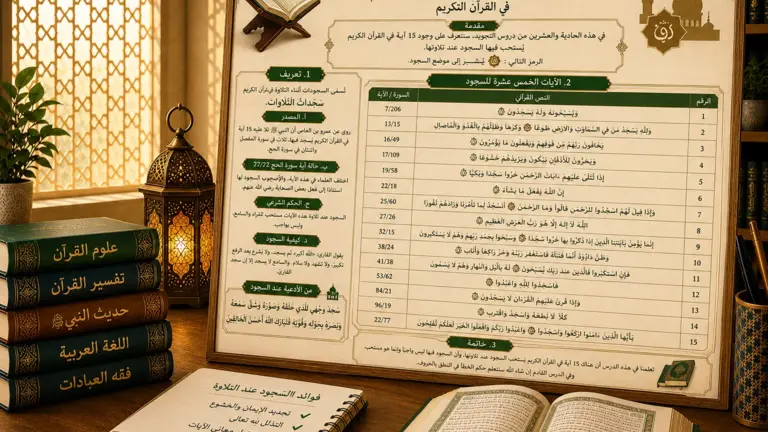 في القرآن الكريم
مقدمة
في هذه الحادية والعشرين من دروس التجويد، سنتعرف على وجود 15 آية في القرآن الكريم
يُستحب فيها السجود عند تلاوتها.
الرمز التالي: ۩ يُشير إلى موضع السجود.
1. تعريف
تُسمى السجودات أثناء التلاوة
سَجَدَاتُ التِّلَاوَات.
أ. المصدر
روى عن عمرو بن العاص أن النبي ﷺ تلا عليه 15 آية
في القرآن الكريم يُسجد فيها، ثلاث في سورة المفصل
واثنتان في سورة الحج.
ب. حالة آية سورة الحج 77/22
اختلف العلماء في هذه الآية، والأصوب السجود لها
استنادًا إلى فعل بعض الصحابة رضي الله عنهم.
ج. الحكم الشرعي
السجود عند تلاوة هذه الآيات مستحب للقراء والسامع،
وليس بواجب.
د. كيفية السجود
يقول القارئ: «الله أكبر» ثم يسجد، ولا يشرع بعد الرفع
تكبير، ولا تشهد ولا سلام. والسامع لا يسجد إلا إن سجد
القارئ.
من الأدعية عند السجود
سَجَدَ وَجْهِيَ لِلَّذِي خَلَقَهُ وَصَوَّرَهُ وَشَقَّ سَمْعَهُ
وَبَصَرَهُ بِحَوْلِهِ وَقُوَّتِهِ فَتَبَارَكَ اللَّهُ أَحْسَنُ الْخَالِقِينَ
2. الآيات الخمس عشرة للسجود
الرقم النص القرآني السورة / الآية
1 وَيُسَبِّحُونَهُ وَلَهُ يَسْجُدُونَ ۩ 7/206
2 وَلِلَّهِ يَسْجُدُ مَن فِي السَّمَاوَاتِ وَالْأَرْضِ طَوْعًا وَكَرْهًا وَظِلَالُهُم بِالْغُدُوِّ وَالْآصَالِ 13/15
3 يَخَافُونَ رَبَّهُم مِّن فَوْقِهِمْ وَيَفْعَلُونَ مَا يُؤْمَرُونَ ۩ 16/49
4 وَيَخِرُّونَ لِلْأَذْقَانِ يَبْكُونَ وَيَزِيدُهُمْ خُشُوعًا ۩ 17/109
5 إِذَا تُتْلَىٰ عَلَيْهِمْ آيَاتُ الرَّحْمَٰنِ خَرُّوا سُجَّدًا وَبُكِيًّا ۩ 19/58
6 إِنَّ اللَّهَ يَفْعَلُ مَا يَشَاءُ ۩ 22/18
7 وَإِذَا قِيلَ لَهُمُ اسْجُدُوا لِلرَّحْمَٰنِ قَالُوا وَمَا الرَّحْمَٰنُ أَنَسْجُدُ لِمَا تَأْمُرُنَا وَزَادَهُمْ نُفُورًا 25/60
8 اللَّهُ لَا إِلَٰهَ إِلَّا هُوَ رَبُّ الْعَرْشِ الْعَظِيمِ ۩ 27/26
9 إِنَّمَا يُؤْمِنُ بِآيَاتِنَا الَّذِينَ إِذَا ذُكِّرُوا بِهَا خَرُّوا سُجَّدًا وَسَبَّحُوا بِحَمْدِ رَبِّهِمْ وَهُمْ لَا يَسْتَكْبِرُونَ 32/15
10 وَظَنَّ دَاوُودُ أَنَّمَا فَتَنَّاهُ فَاسْتَغْفَرَ رَبَّهُ وَخَرَّ رَاكِعًا وَأَنَابَ ۩ 38/24
11 فَإِنِ اسْتَكْبَرُوا فَالَّذِينَ عِندَ رَبِّكَ يُسَبِّحُونَ لَهُ بِاللَّيْلِ وَالنَّهَارِ وَهُمْ لَا يَسْأَمُونَ 41/38
12 فَاسْجُدُوا لِلَّهِ وَاعْبُدُوا ۩ 53/62
13 وَإِذَا قُرِئَ عَلَيْهِمُ الْقُرْآنُ لَا يَسْجُدُونَ ۩ 84/21
14 كَلَّا لَا تُطِعْهُ وَاسْجُدْ وَاقْتَرِب ۩ 96/19
15 يَا أَيُّهَا الَّذِينَ آمَنُوا ارْكَعُوا وَاسْجُدُوا وَاعْبُدُوا رَبَّكُمْ وَافْعَلُوا الْخَيْرَ لَعَلَّكُمْ تُفْلِحُونَ 22/77
3. خاتمة
تعلمنا في هذا الدرس أن هناك 15 آية في القرآن الكريم يستحب السجود عند تلاوتها، وأن السجود فيها ليس واجبًا وإنما هو مستحب.
وفي الدرس القادم إن شاء الله سنتعلم حكم الخطأ في النطق بالحروف.
علوم القرآن
تفسير القرآن
حديث النبي ﷺ
اللغة العربية
فقه العبادات
فوائد السجود عند التلاوة
تجديد الإيمان والخشوع
التذلل لله تعالى
معاني الآيات